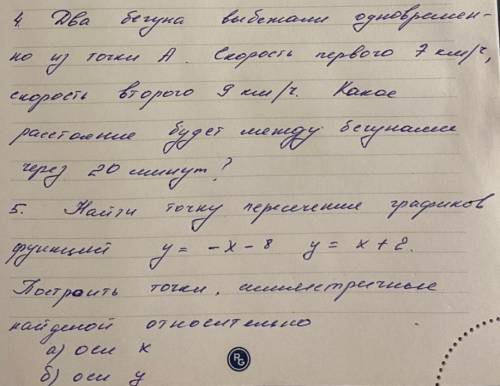 4. Два бегуна выбежали одновремен-
но из точки А. Скорость первого 7 км/ч,
скорость второго 9 км/ч. Какое
расстояние будет между бегунами
через 20 минут?
5. Найти точку пересечения графиков
функций y = -x - 8 y = x + 2.
Построить точки, симметричные
найденой относительно
а) оси x
б) оси y
PG